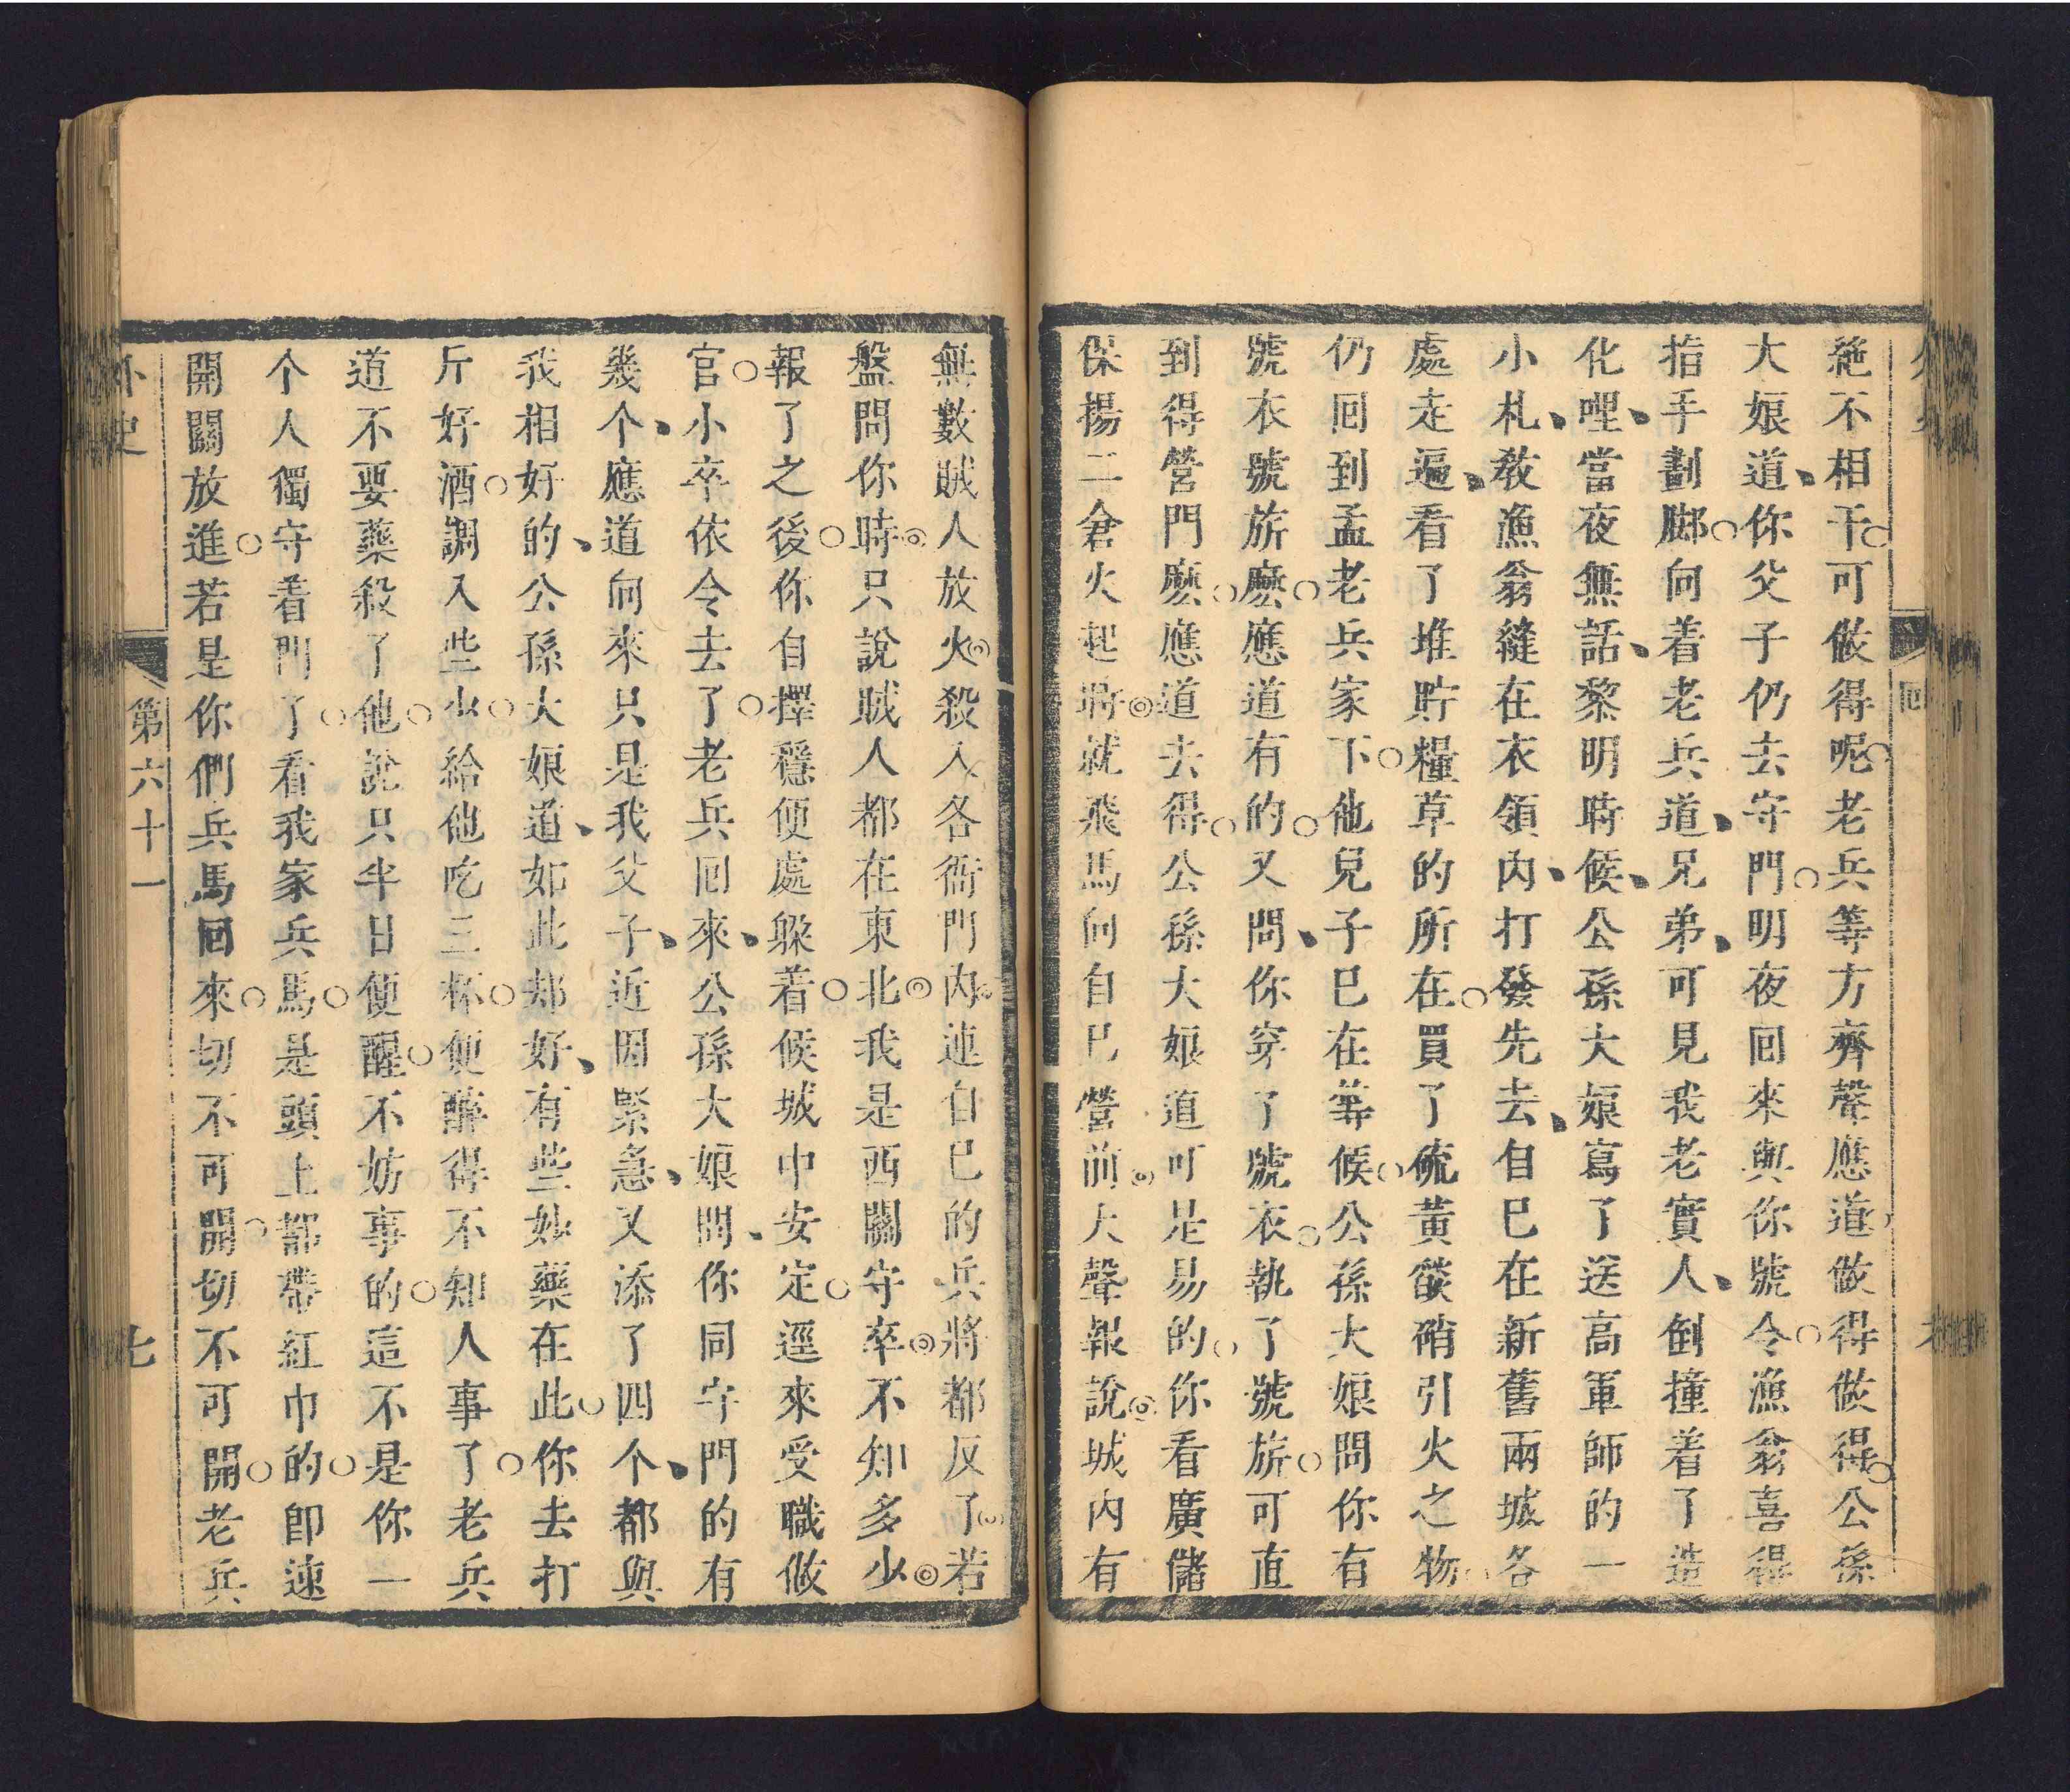 絶不相干可做得呢老兵等方齊聲應道做得做得公孫
大娘道你父子仍去守門明夜回來與你號令漁翁喜得
指手劃脚向着老兵道兄弟可見我老實人倒撞着了造
化哩當夜無話黎明時候公孫大娘寫了送高軍師的一
小札教漁翁縫在衣領內打發先去自己在新舊兩城各
處走遍看了堆貯糧草的所在買了硫黃燄硝引火之物
仍回到孟老兵家下他兒子已在等候公孫大娘問你有
號衣號旂麽應道有的又問你穿了號衣執了號旂可直
到得營門麽應道去得得公孫大娘道可是易的你看廣儲
保揚二倉火起時就飛馬向自己營前大聲報說城內有
無數賊人放火殺入各衙門內連自己的兵將都反了若
盤問你時只說賊人都在東北我是西關守卒不知多少
報了之後你自擇穩便處躲着候城中安定逕來受職做
官小卒依令去了老兵回來公孫大娘問你同守門的有
幾个應道向來只是我父子近因緊急又添了四个都與
我相好的公孫大娘道如此却好有些妙藥在此你去打
斤好酒調入些少給他吃三杯便醉得不知人事了老兵
道不要藥殺了他說只半日便醒不妨事的這不是你一
个人獨守着門了看我家兵馬是頭上都帶紅巾的卽速
開關放進若是你們兵馬回來切不可開切不可開老兵
外史
第六十一
七